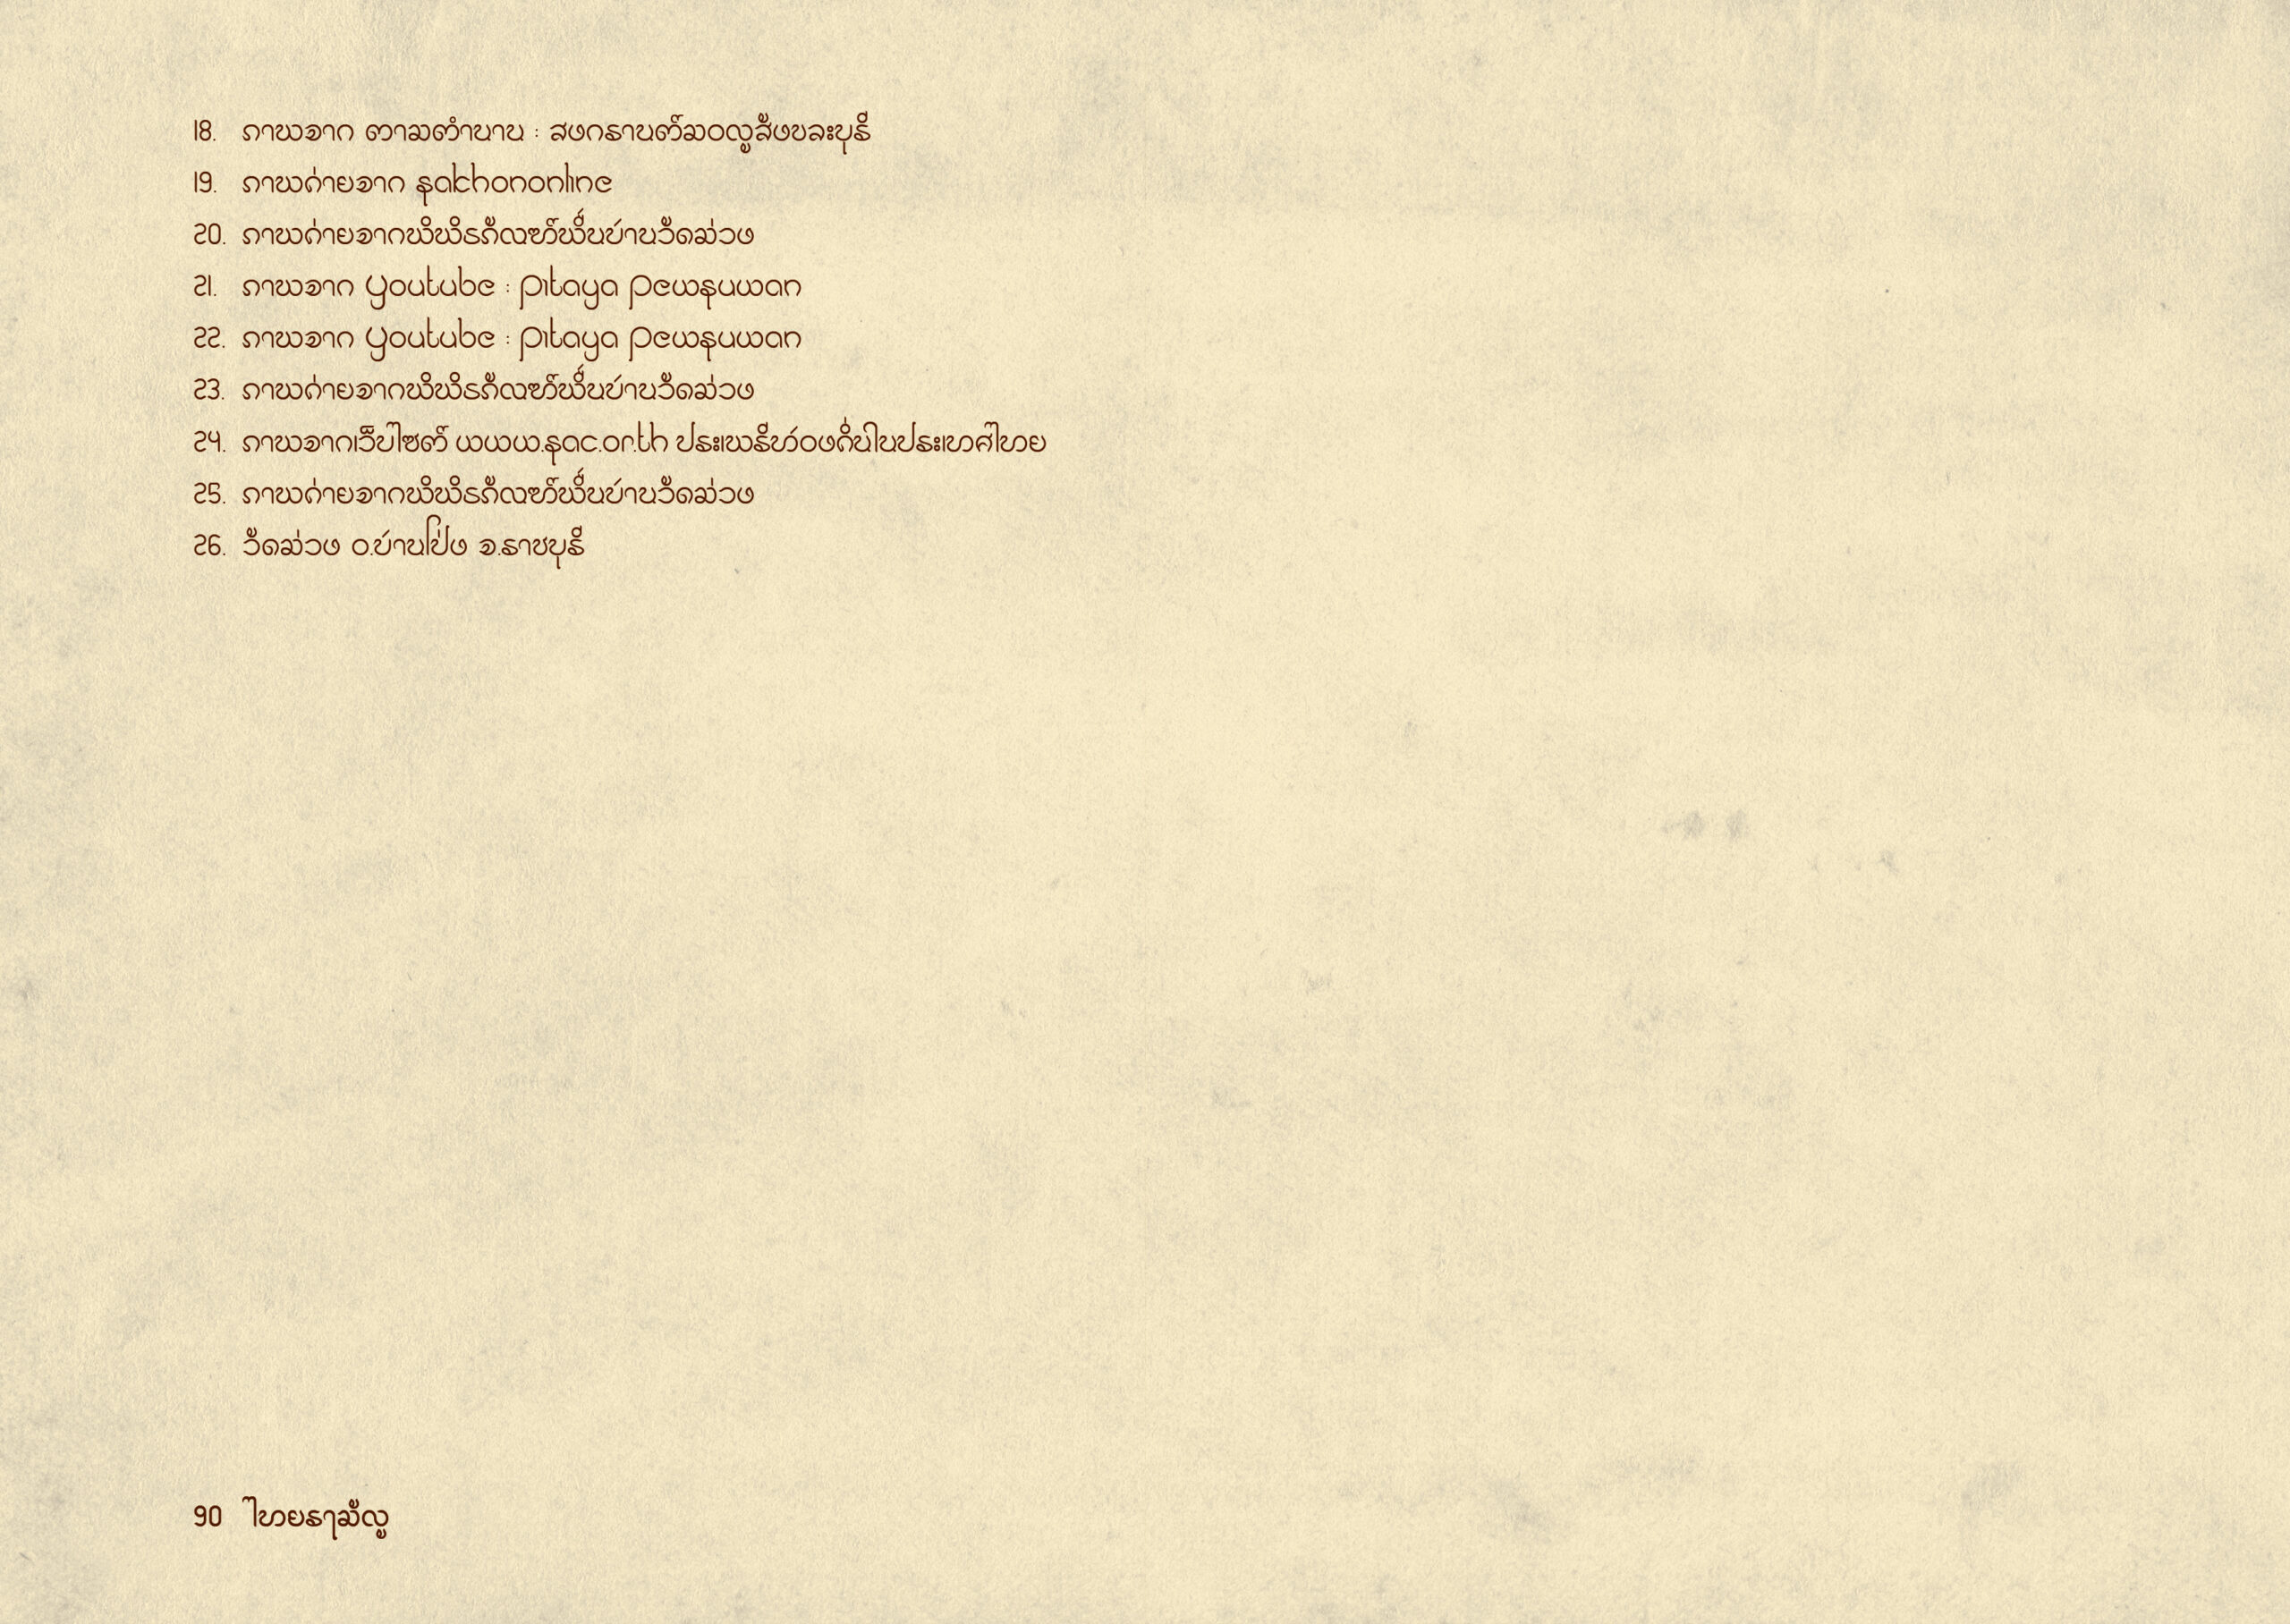 18. ภาพจาก ตามตำนาน : สงกรานต์มอญสังขละบุรี
19. ภาพถ่ายจาก sakhononline
20. ภาพถ่ายจากพิพิธภัณฑ์พื้นบ้านวัดม่วง
21. ภาพจาก Youtube : Pitaya Pewsuwan
22. ภาพจาก Youtube : Pitaya Pewsuwan
23. ภาพถ่ายจากพิพิธภัณฑ์พื้นบ้านวัดม่วง
24. ภาพจากเว็บไซต์ www.sac.or.th ประเพณีท้องถิ่นในประเทศไทย
25. ภาพถ่ายจากพิพิธภัณฑ์พื้นบ้านวัดม่วง
26. วัดม่วง อ.บ้านโป่ง จ.ราชบุรี
90 ไทยรามัญ